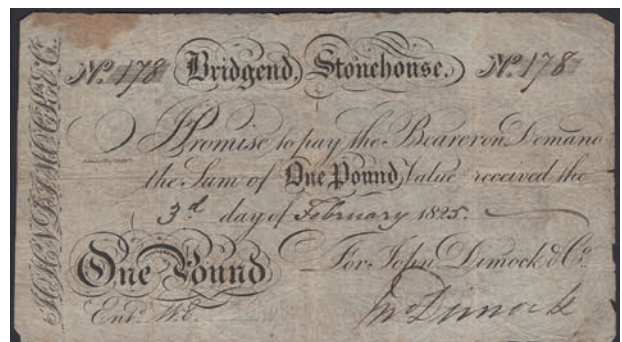 JOHN DIMOCK & Co.
No. 178 Bridgend, Stonehouse. No. 178
I Promise to pay the Bearer on Demand
the Sum of One Pound Value received the
3d. day of February 1825.
One Pound For John Dimock & Co.
Entd. W.E. Jno Dimock